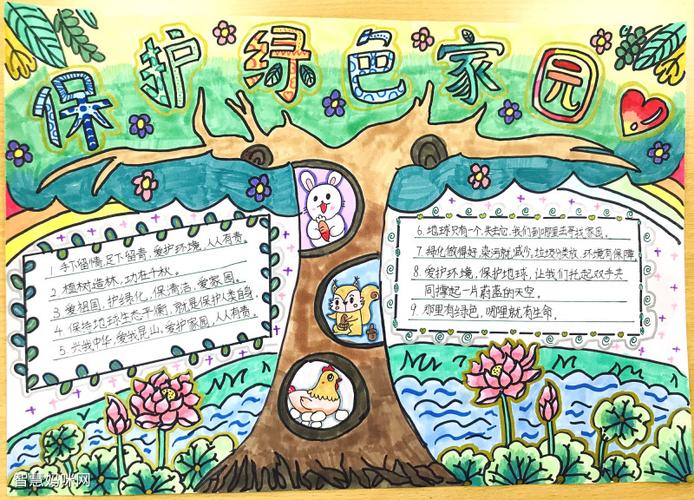 保护绿色家园
1 手下留情,足下留青,爱护环境,人人有责。
2 植树造林,功在千秋。
3 爱祖国,护绿化,保清洁,爱家园。
4 保持地球生态平衡,就是保护人类自身。
5 兴我中华,爱我昆山,爱护家园,人人有责。
6.地球只有一个,失去它,我们到哪里去寻找家园。
7 绿化做得好,染河就减少,垃圾分类放,环境有保障
8 爱护环境,保护地球,让我们托起双手共
同撑起一片蔚蓝的天空。
9 那里有绿色,哪里就有生命。
智慧妈咪网